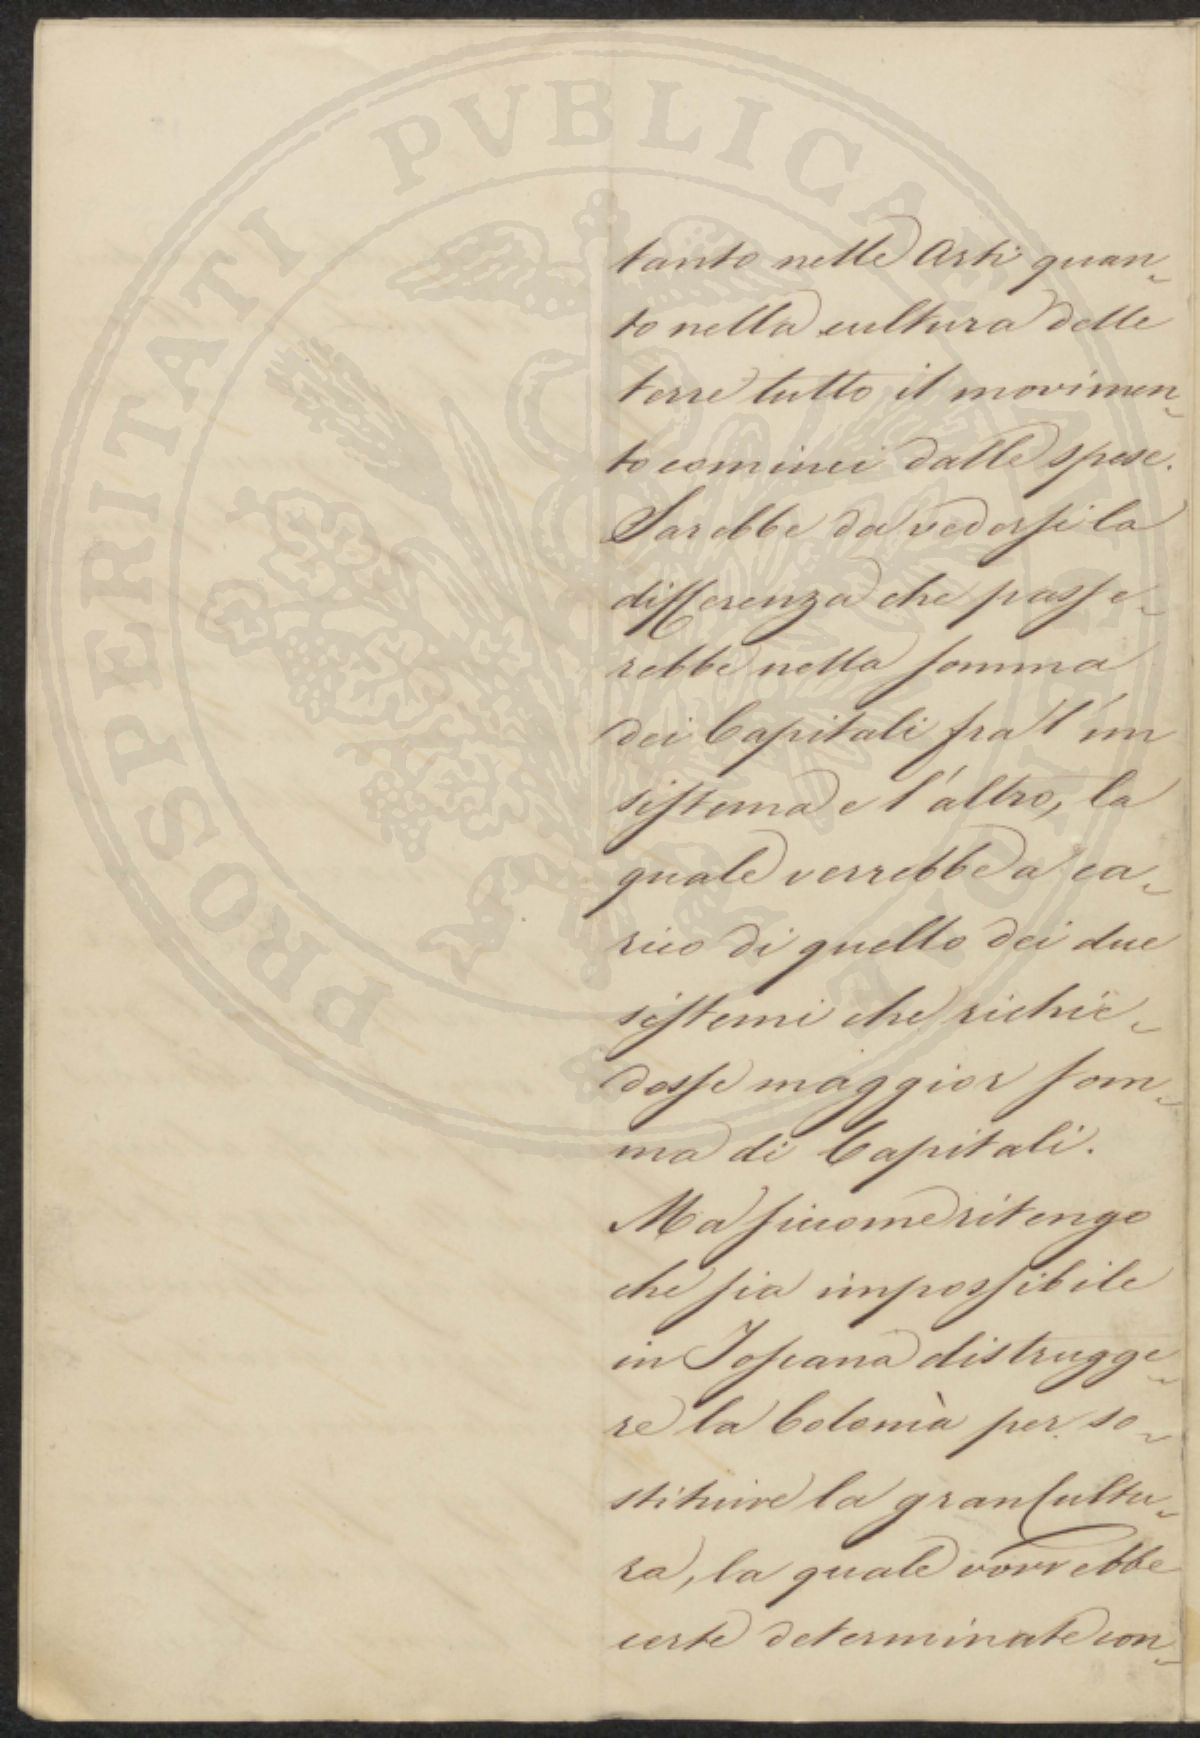 PROSPERITATI PUBLICAE AUGENDAE
tanto nelle Arti quan-
to nella cultura delle
terre tutto il movimen-
to cominci dalle spese.
Sarebbe da vedersi la
differenza che passe-
rebbe nella somma
dei Capitali fra l'un
sistema e l'altro, la
quale verrebbe a ca-
rico di quello dei due
sistemi che richie-
desse maggior som-
ma di Capitali.
Ma siccome ritengo
che sia impossibile
in Toscana distrugge-
re la Colonìa per so-
stituire la gran Cultu-
ra, la quale vorrebbe
certe determinate con-